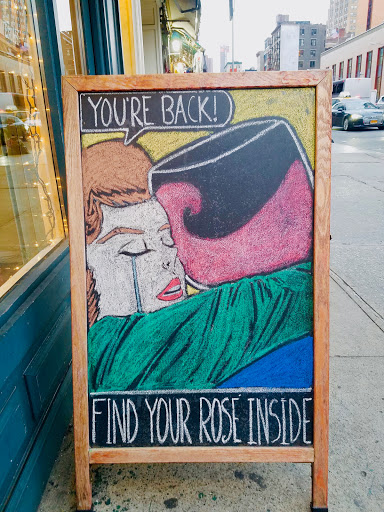 YOU'RE BACK!
FIND YOUR ROSÉ INSIDE